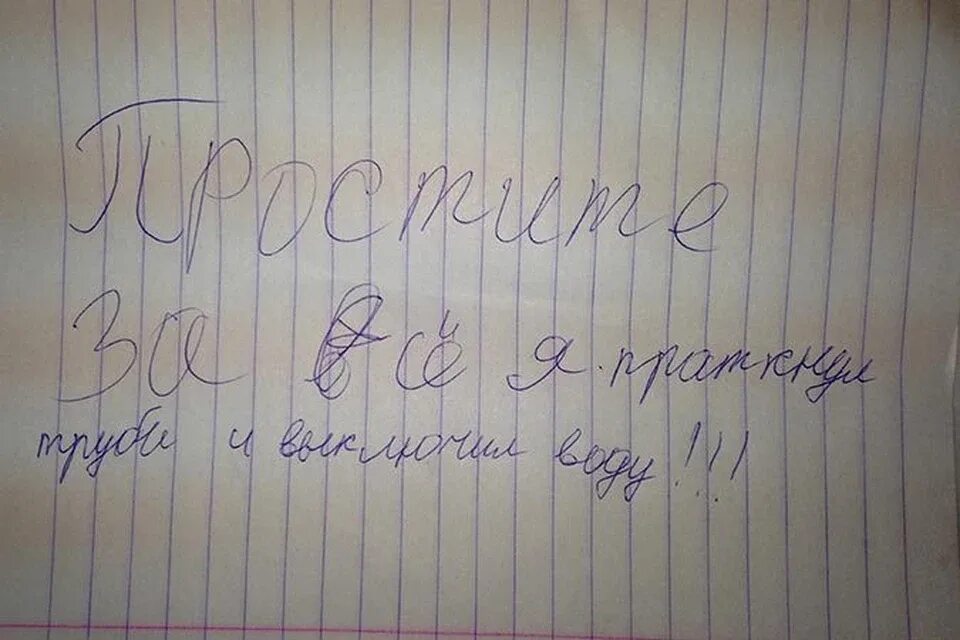 Простите
за всё я праткнул
трубы и выключил воду!!!